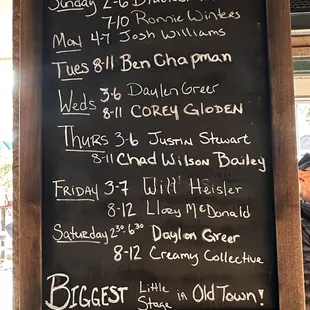 Sunday 2-6
7-10 Ronnie Winters
Mon 4-7 Josh Williams
Tues 8-11 Ben Chapman
Weds 3-6 Daylen Greer
8-11 Corey Gloden
Thurs 3-6 Justin Stewart
8-11 Chad Wilson Bailey
Friday 3-7 Will Heisler
8-12 Lloey McDonald
Saturday 2:30-6:30 Daylon Greer
8-12 Creamy Collective
Biggest Little Stage in Old Town!